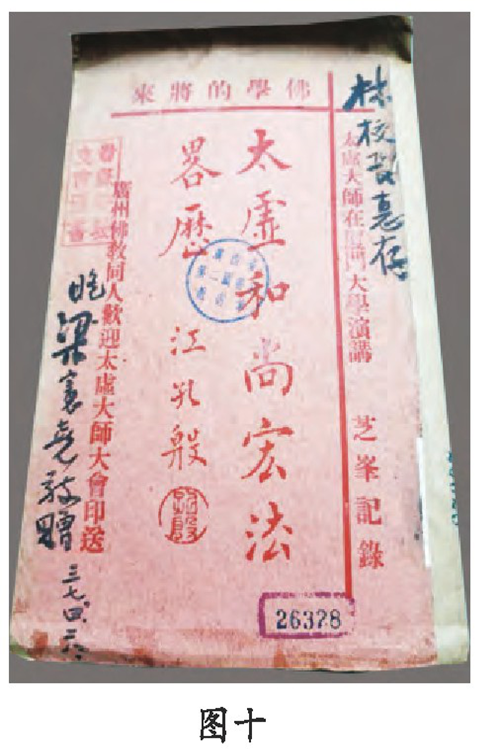 佛學的將來
太虛大師在嶺南大學演講 芝峯記錄
太虛和尚宏法
畧歷 江孔殷
廣州佛教同人歡迎太虛大師大會印送
林校長惠存
晚梁寬堯敬贈
26328
图十